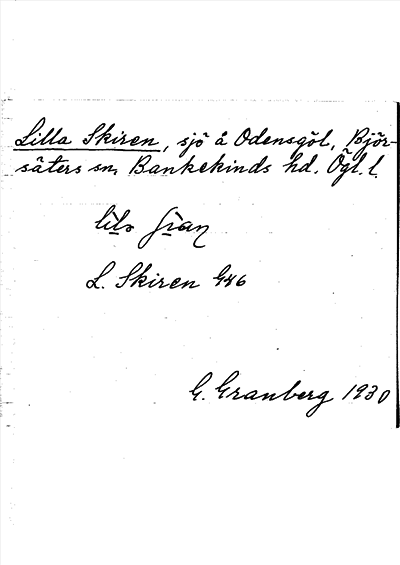 Lilla Skiren, sjö å Odensgöl, Björ-
säters sn, Bankekinds hd. Ögl. l.
lila
L. Skiren G46
G. Granberg 1930